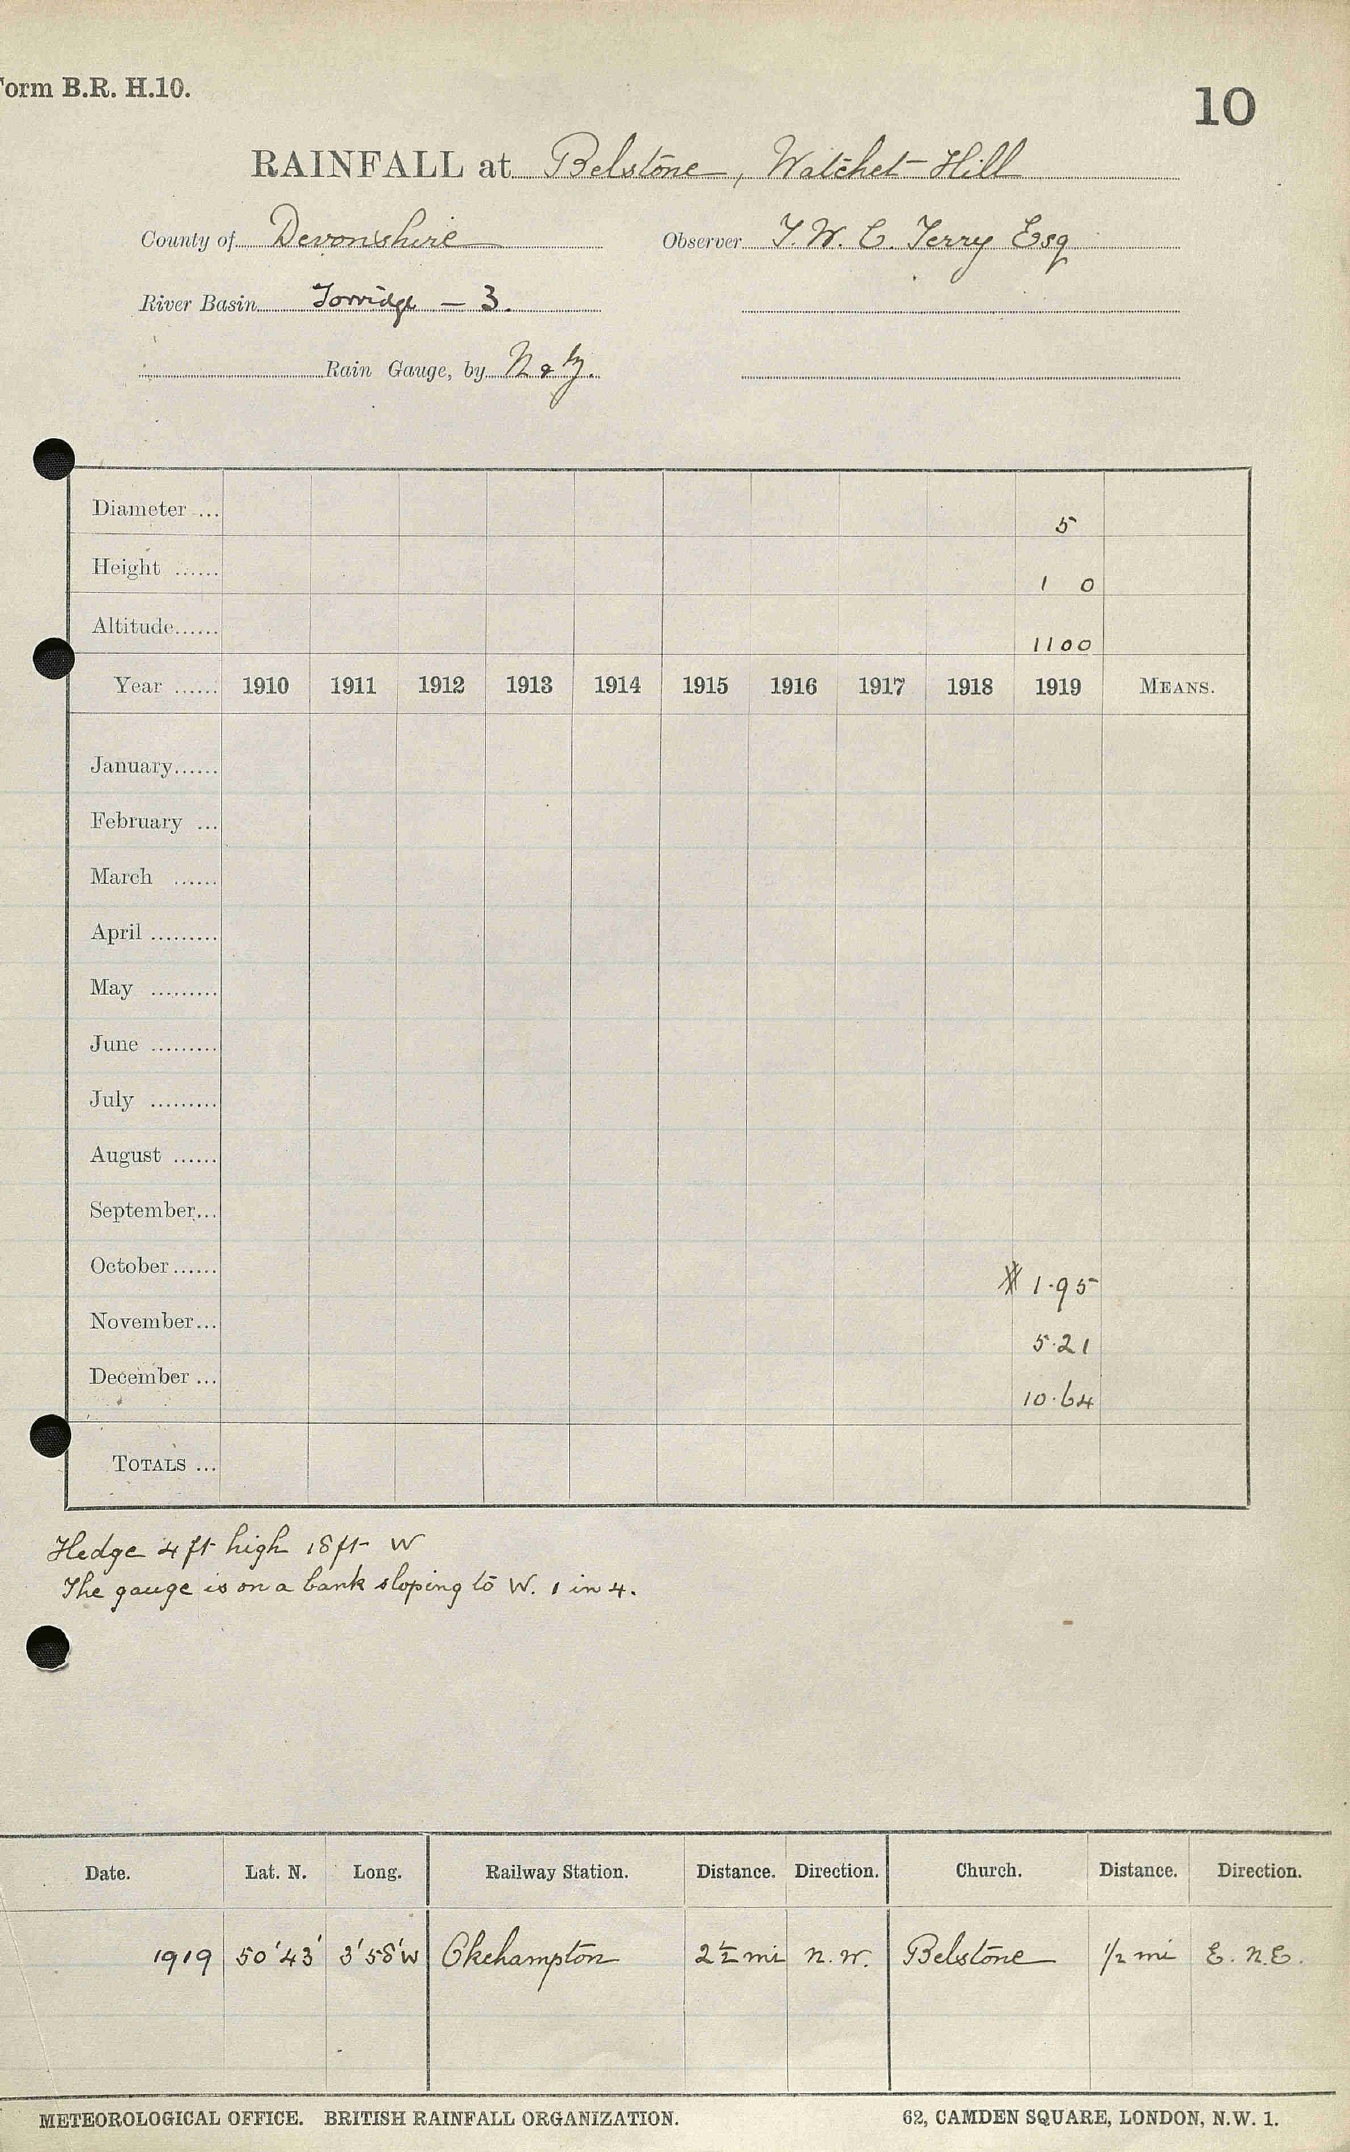 Form B.R. H.10.
10
RAINFALL at Belstone, Watchet Hill
County of Devonshire Observer T. W. C. Terry Esq
River Basin Torridge — 3.
Rain Gauge, by N & Z.
Diameter ... 5
Height ...... 1 0
Altitude...... 1100
Year ...... 1910 1911 1912 1913 1914 1915 1916 1917 1918 1919 MEANS.
January......
February ...
March ......
April .........
May .........
June .........
July .........
August ......
September...
October...... 1.95
November... 5.21
December ... 10.64
TOTALS ...
Hedge 4 ft high 18 ft W
The gauge is on a bank sloping to W. 1 in 4.
Date. Lat. N. Long. Railway Station. Distance. Direction. Church. Distance. Direction.
1919 50'43' 3'58'W Okehampton 2½ mi N.W. Belstone ½ mi E.N.E.
METEOROLOGICAL OFFICE. BRITISH RAINFALL ORGANIZATION. 62, CAMDEN SQUARE, LONDON, N.W. 1.